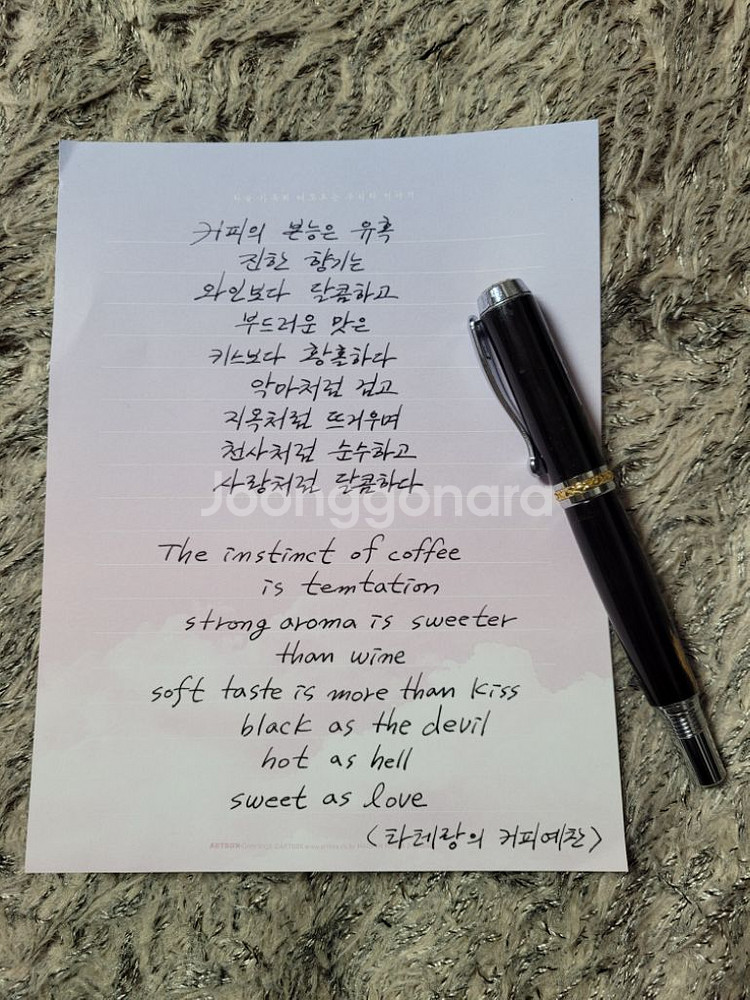 커피의 본능은 유혹
진한 향기는
와인보다 달콤하고
부드러운 맛은
키스보다 황홀하다
악마처럼 검고
지옥처럼 뜨거우며
천사처럼 순수하고
사랑처럼 달콤하다
Joonggonara
The instinct of coffee
is temtation
strong aroma is sweeter
than wine
soft taste is more than kiss
black as the devil
hot as hell
sweet as love
(타테랑의 커피예찬)
ARTBOX